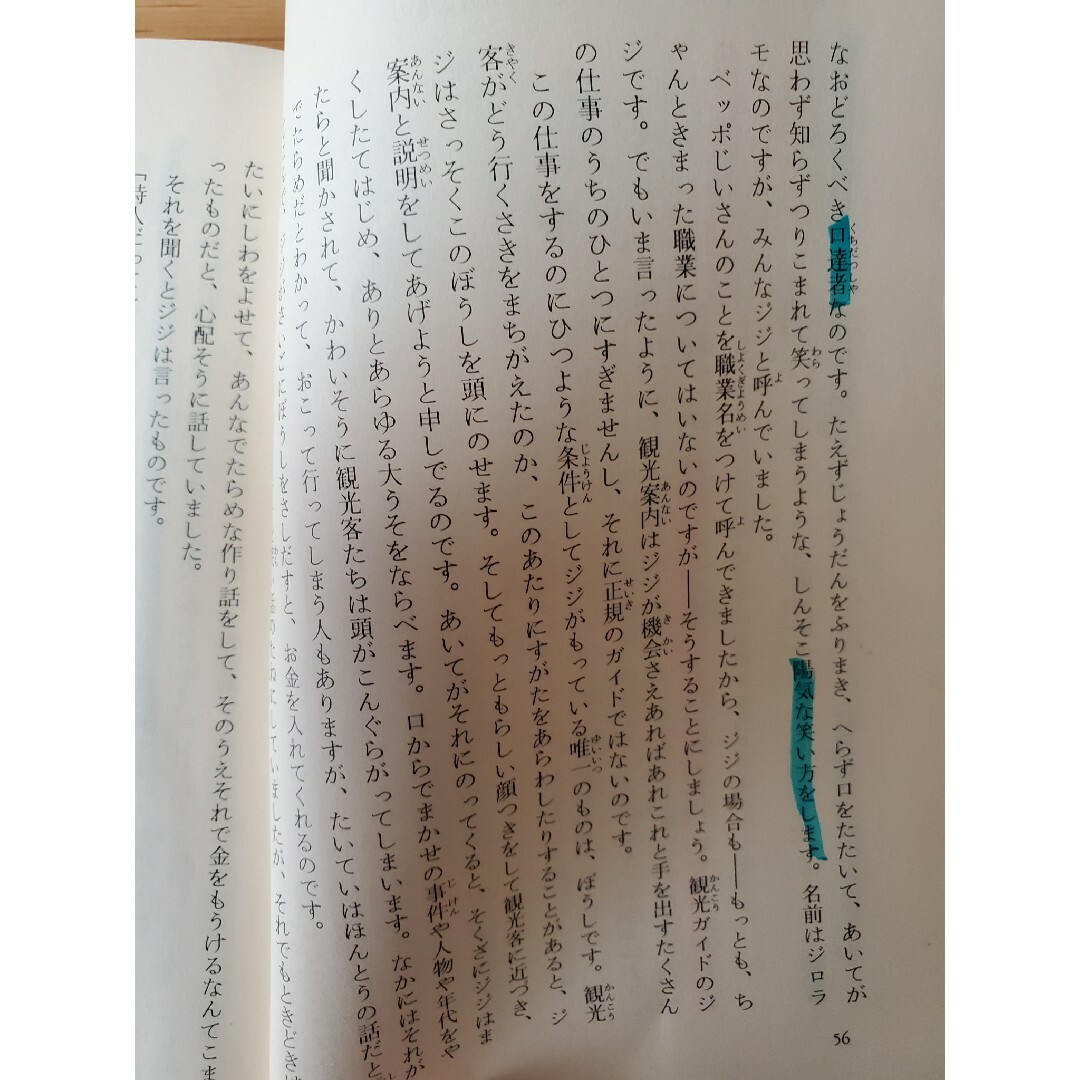 なおどろくべき口達者なのです。たえずじょうだんをふりまき、へらず口をたたいて、あいてが
思わず知らずつりこまれて笑ってしまうような、しんそこ陽気な笑い方をします。名前はジロラ
モなのですが、みんなジジと呼んでいました。
ベッポじいさんのことを職業名をつけて呼んできましたから、ジジの場合も──もっとも、ち
ゃんときまった職業についてはいないのですが──そうすることにしましょう。観光ガイドのジ
ジです。でもいま言ったように、観光案内はジジが機会さえあればあれこれと手を出すたくさん
の仕事のうちのひとつにすぎませんし、それに正規のガイドではないのです。
この仕事をするのにひつような条件としてジジがもっている唯一のものは、ぼうしです。観光
客がどう行くさきをまちがえたのか、このあたりにすがたをあらわしたりすることがあると、ジ
ジはさっそくこのぼうしを頭にのせます。そしてもっともらしい顔つきをして観光客に近づき、
案内と説明をしてあげようと申しでるのです。あいてがそれにのってくると、そくざにジジはま
くしたてはじめ、ありとあらゆる大うそをならべます。口からでまかせの事件や人物や年代をや
たらと聞かされて、かわいそうに観光客たちは頭がこんぐらがってしまいます。なかにはそれが
でたらめだとわかって、おこって行ってしまう人もありますが、たいていはほんとうの話だと
ジジがさいごにぼうしをさしだすと、お金を入れてくれるのです。
していましたが、それでもときどきは
たいにしわをよせて、あんなでたらめな作り話をして、そのうえそれで金をもうけるなんてこま
ったものだと、心配そうに話していました。
それを聞くとジジは言ったものです。
「詩人だって
56